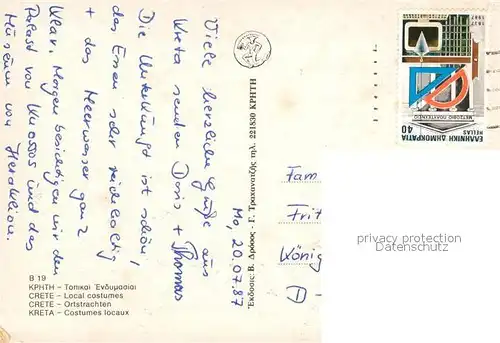 Mo, 20.07.87
Viele herzliche Grüße aus
Kreta senden Doris + Thomas
Die Unterkunft ist schön,
das Essen sehr reichhaltig
+ das Meerwasser ganz
klar. Morgen besichtigen wir den
Palast von Knossos und das
Museum von Heraklion.
B 19
ΚΡΗΤΗ – Τοπικαί Ένδυμασίαι
CRETE – Local costumes
CRETE – Ortstrachten
KRETA – Costumes locaux
Έκδοσις: Β. Δρόσος - Γ. Τραχανατζής τηλ. 221830 ΚΡΗΤΗ
1837
1987
ΜΕΤΣΟΒΙΟ ΠΟΛΥΤΕΧΝΕΙΟ
ΕΛΛΗΝΙΚΗ ΔΗΜΟΚΡΑΤΙΑ
HELLAS
40
Fam
Frit
König
D -
privacy protection
Datenschutz